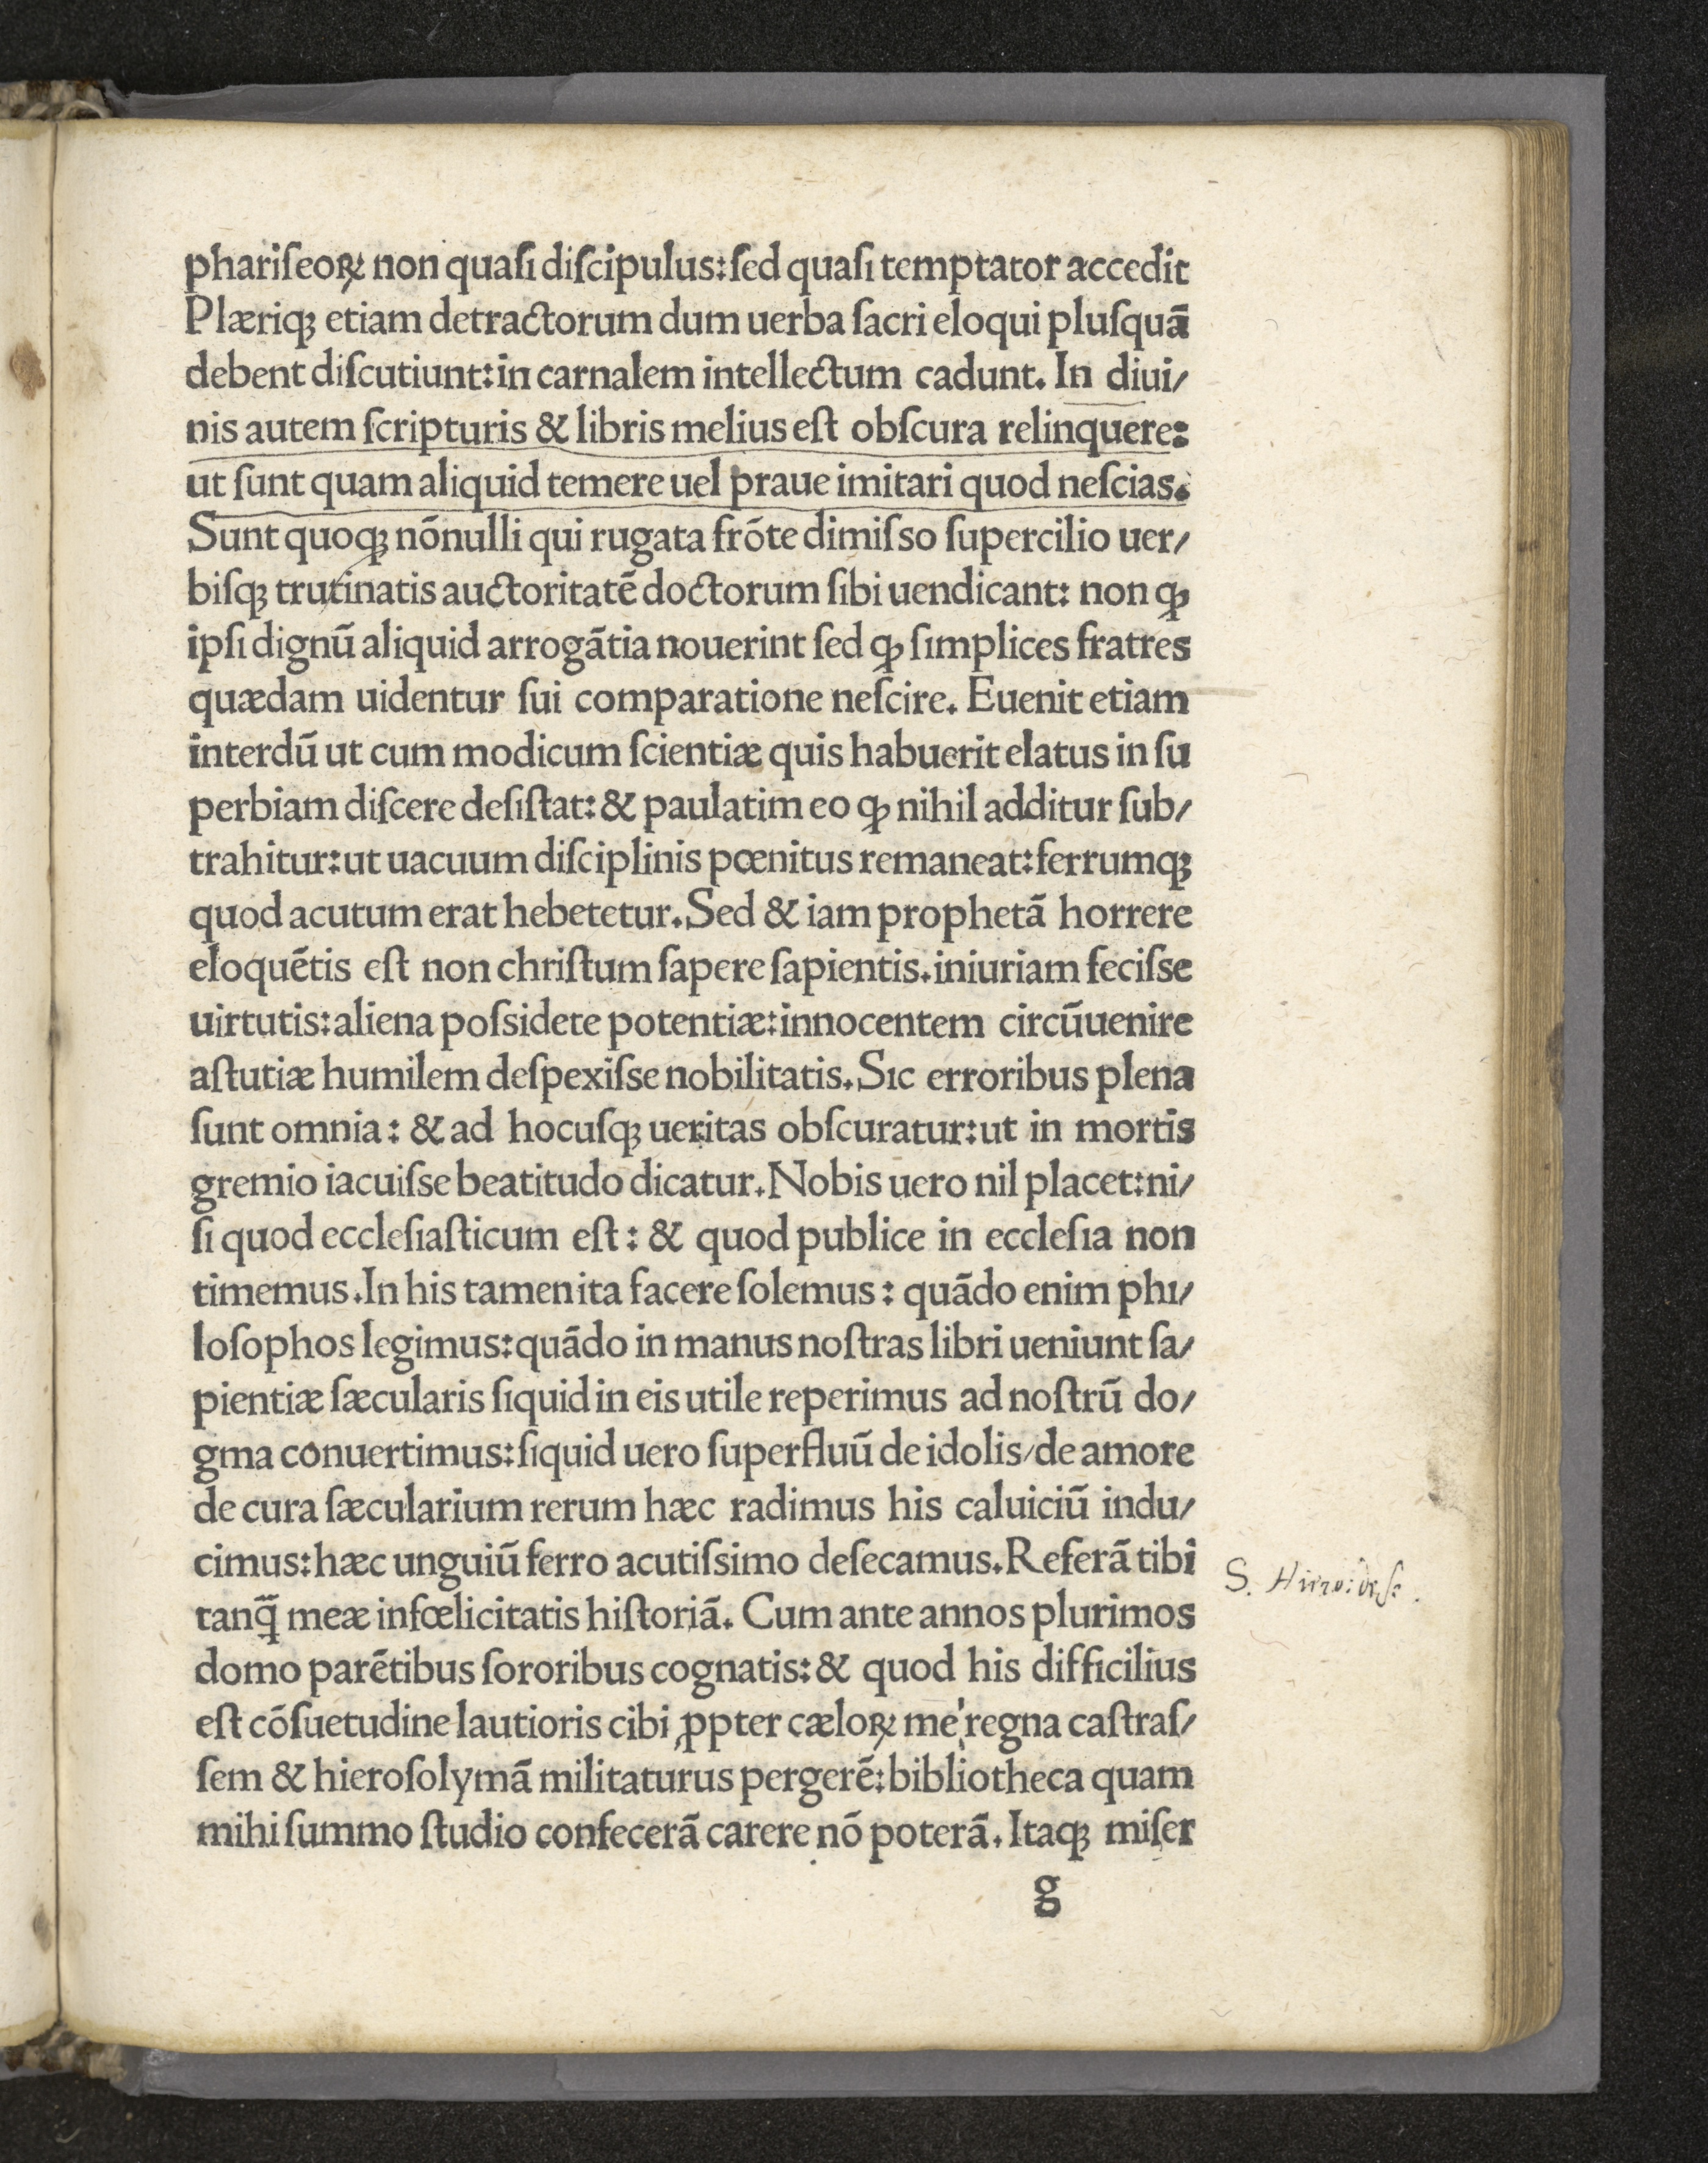 phariſeoꝝ non quaſi diſcipulus: ſed quaſi temptator accedit
Plæriqꝫ etiam detractorum dum uerba ſacri eloqui pluſquā
debent diſcutiunt: in carnalem intellectum cadunt. In diui/
nis autem ſcripturis & libris melius eſt obſcura relinquere:
ut ſunt quam aliquid temere uel praue imitari quod neſcias.
Sunt quoqꝫ nōnulli qui rugata frōte dimiſso ſupercilio uer/
biſqꝫ trutinatis auctoritatē doctorum ſibi uendicant: non ꝙ
ipſi dignū aliquid arrogātia nouerint ſed ꝙ ſimplices fratres
quædam uidentur ſui comparatione neſcire. Euenit etiam
interdū ut cum modicum ſcientiæ quis habuerit elatus in ſu
perbiam diſcere deſiſtat: & paulatim eo ꝙ nihil additur ſub/
trahitur: ut uacuum diſciplinis pœnitus remaneat: ferrumqꝫ
quod acutum erat hebetetur. Sed & iam prophetā horrere
eloquētis eſt non chriſtum ſapere ſapientis. iniuriam feciſse
uirtutis: aliena poſsidete potentiæ: innocentem circūuenire
aſtutiæ humilem deſpexiſse nobilitatis. Sic erroribus plena
ſunt omnia: & ad hocuſqꝫ ueritas obſcuratur: ut in mortis
gremio iacuiſse beatitudo dicatur. Nobis uero nil placet: ni/
ſi quod eccleſiaſticum eſt: & quod publice in eccleſia non
timemus. In his tamen ita facere ſolemus: quādo enim phi/
loſophos legimus: quādo in manus noſtras libri ueniunt ſa/
pientiæ ſæcularis ſiquid in eis utile reperimus ad noſtrū do/
gma conuertimus: ſiquid uero ſuperfluū de idolis/de amore
de cura ſæcularium rerum hæc radimus his caluiciū indu/
cimus: hæc unguiū ferro acutiſsimo deſecamus. Referā tibi
tanq̄̄ meæ infœlicitatis hiſtoriā. Cum ante annos plurimos
domo parētibus ſororibus cognatis: & quod his difficilius
eſt cōſuetudine lautioris cibi ꝓpter cæloꝝ me regna caſtraſ/
ſem & hieroſolymā militaturus pergerē: bibliotheca quam
mihi ſummo ſtudio confecerā carere nō poterā. Itaqꝫ miſer
g
S.